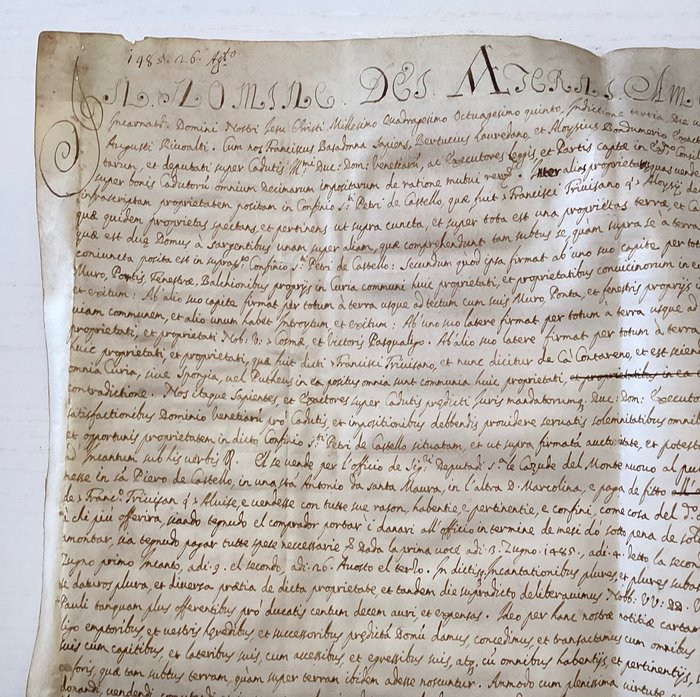 1485. 26. Agto
IN NOMINE. DEI ÆTERNI AM
Incarnati. Domini Nostri Jesu Christi Millesimo Quadragesimo Octuagesimo quinto, Indictione tertia Die
Augusti Rivoalti. Cum nos Franciscus Basadonna Sapiens, Bertuccius Lauredano, et Aloysius Bondumerio Exact
tarum, et deputati super Cadutis Duc: Dom: Venetiarũ, ac Executores legis et Partis captæ in Cons
super bonis Cadutorũ omnium Decimarum impositarum de ratione mutui inter alias proprietates, quas vende
infrascriptam proprietatem positam in Confinio S. Petri de Castello, quæ fuit Francisci Trivisano q. Aloisij,
quæ quidem proprietas spectans, et pertinens ut supra cuncta, et super tota est una proprietas terræ, et Ca
quæ est duæ Domus à Sargentibus unam super aliam, quæ comprehendunt tam subtus se, quam supra se, à terra
coniuncta posita est in supradto Confinio S. Petri de Castello: Secundum quod ipsa firmat ab uno suo capite per tot
Muro, Pontis Fenestræ, Balchionibus proprijs in Curia communi huic proprietati, et proprietatibus convicinorum in ea
et exitum: Ab alio suo capite firmat per totum à terra usque ad tectum cum suis Muro, Ponta, et fenestris proprijs
viam communem, et alio unum habet Introitum, et exitum: Ab uno suo latere firmat per totum à terra usque
proprietati, et proprietati Nob. V. Cosmæ, et Victoris Pasqualigo. Ab alio suo latere firmat per totum à terra
huic proprietati, et proprietati, quæ fuit dicti Francisci Trivisano, et nunc dicitur de Cà Contareno, et est
omnia Curia, sive Spongia, vel Putheus in ea positus omnia sunt communia huic proprietati, et proprietatibus in ea
contradictione. Nos itaque Sapientes et Exactores super Cadutis prædicti Juris mandatorumq Duc: Dom:
satisfactionibus Dominio Venetiarũ pro Cadutis, et impositionibus debendis providere servatis solemnitatibus
et opportunis proprietatem in dicto Confinio S. Petri de Castello situatam, et ut supra firmatã auctoritate, et potest
ad incantum sub his verbis. El se vende per l'officio de Sigri Deputadi le Cazude del Monte nuovo al pu
nesse in sã Piero de Castello, in una sta Antonio da santa Maura, in l'altra D. Marcolina, e paga de fitto all'
de Franco Trivisan q. Aluise, e vendesse con tutte sue rason, habentie, e pertinentie, e confini, come cosa del do
à chi più offerirà, siando tegnudo el comprador portar i danari all'officio in termine de mesi dò sotto pena de sold
amontar, sia tegnudo pagar tutte spese necessarie Dada la prima voce adi. 3. Zugno. 1485., adi. 4. detto la secon
Zugno primo Incanto, adi. 9. el secondo, adi. 26. Avosto el terzo. In dictis Incantationibus plures, et plures
se daturos plura, et diversa prætia de dicta proprietate, et tandem die supradicto deliberavimus. Nobb. VV. DD.
Pauli tanquam plus offerentibus pro ducatis centum decem auri, et expensas. Ideo per hanc nostræ notitiæ cartam
emptoribus et vestris hæredibus et successoribus prædictã Domũ damus, concedimus, et transactamus cum omnibus
suis cum capitibus, et lateribus suis, cum accessibus, et egressibus suis, atq cũ omnibus habentijs, et pertinentijs
foris, quæ tam subtus terram, quam super terram ibidem adesse noscuntur. Ammodo cum plenissima virtute
donandi, vendendi